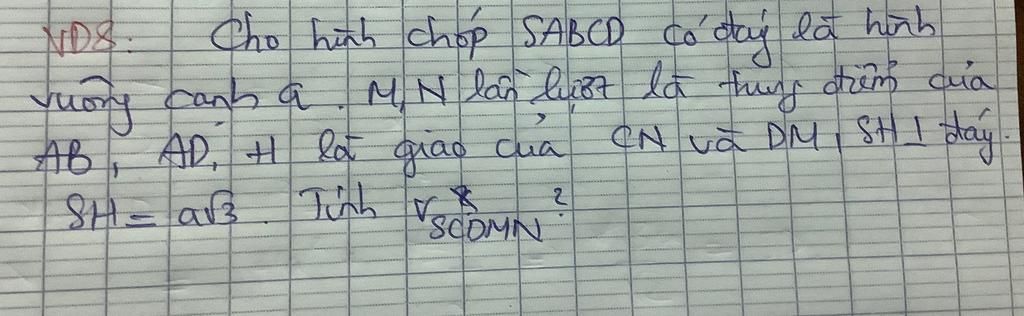 VD8: Cho hình chóp SABCD có đáy là hình
vuông cạnh a. M, N lần lượt là trung điểm của
AB, AD, H là giao của CN và DM, SH ⊥ đáy.
SH = a√3. Tính V SCDMN ?